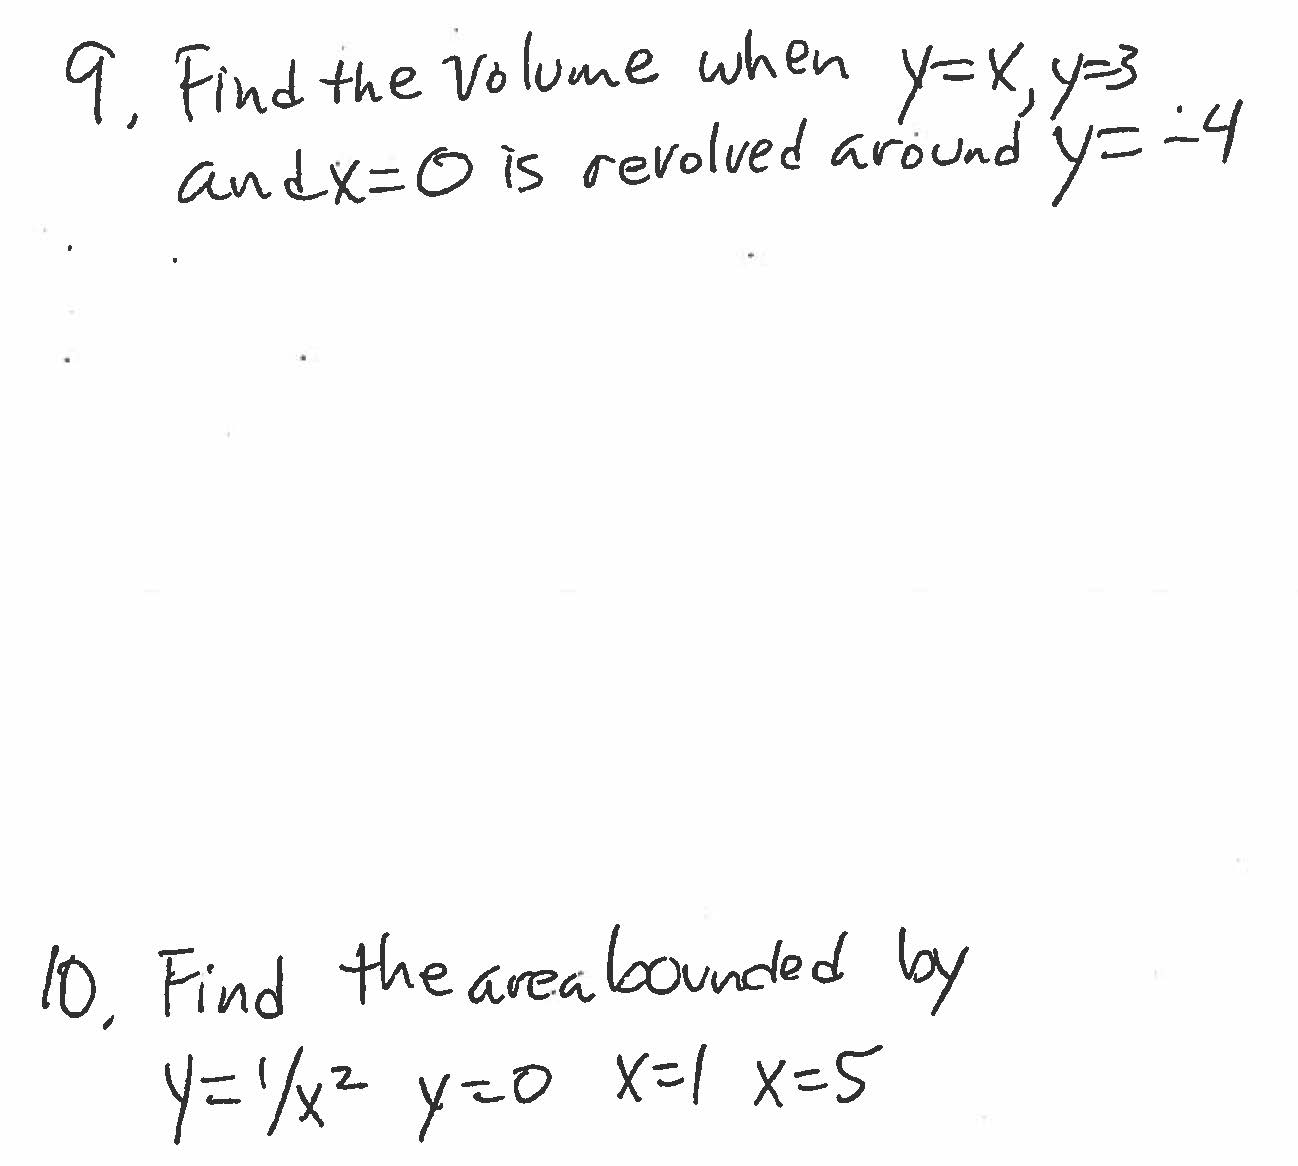 9. Find the volume when y=x, y=3
and x=0 is revolved around y=-4
10. Find the area bounded by
y=1/x² y=0 x=1 x=5